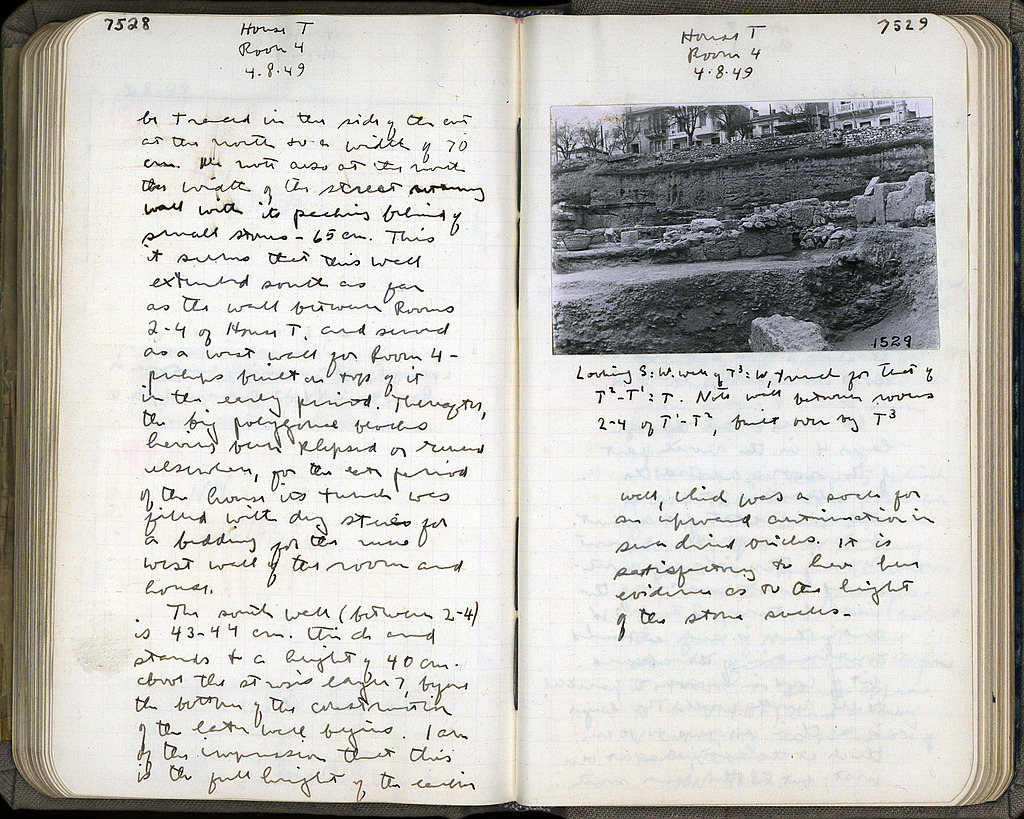 7528
House T
Room 4
4.8.49
be traced in the side of the cut
at the north to a width of 70
cm. We note also at the north
the width of the street
wall with its packing behind of
small stones - 65 cm. Thus
it seems that this wall
extended south as far
as the wall between Rooms
2-4 of House T, and served
as a west wall for Room 4 -
perhaps built on top of it
in the early period. Thereafter,
the big polygonal blocks
having been collapsed or reused
elsewhere, for the period
of the house its trench was
filled with dug stones for
a bedding for the
west wall of the room and
house.
The south wall (between 2-4)
is 43-44 cm. thick and
stands to a height of 40 cm.
above the layer 7, before
the bottom of the construction
of the later wall begins. I am
of the impression that this
is the full height of the earlier
7529
House T
Room 4
4.8.49
1529
Looking S: W. wall of T³: W, trench for that of
T²-T¹: T. Note wall between rooms
2-4 of T¹-T², built over by T³
wall, which was a socle for
an upward continuation in
sun dried bricks. It is
satisfactory to have here
evidence as to the height
of the stone socles.